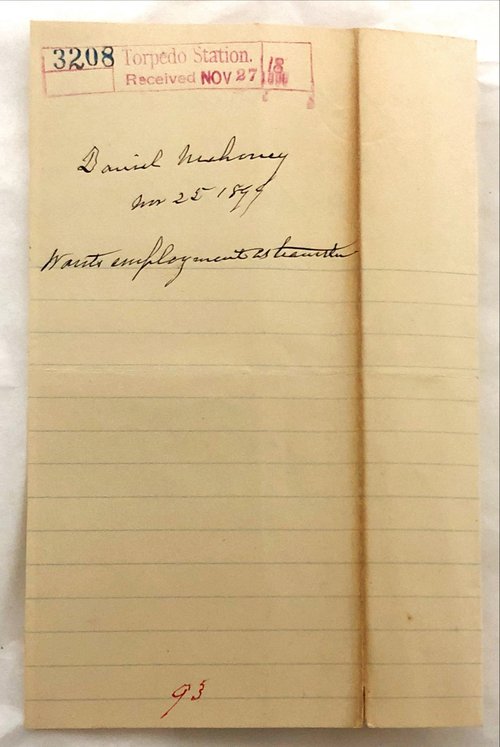 3208 Torpedo Station.
Received NOV 27 18
Daniel Mahoney
Nov 25 1899
Wants employment as teamster
93